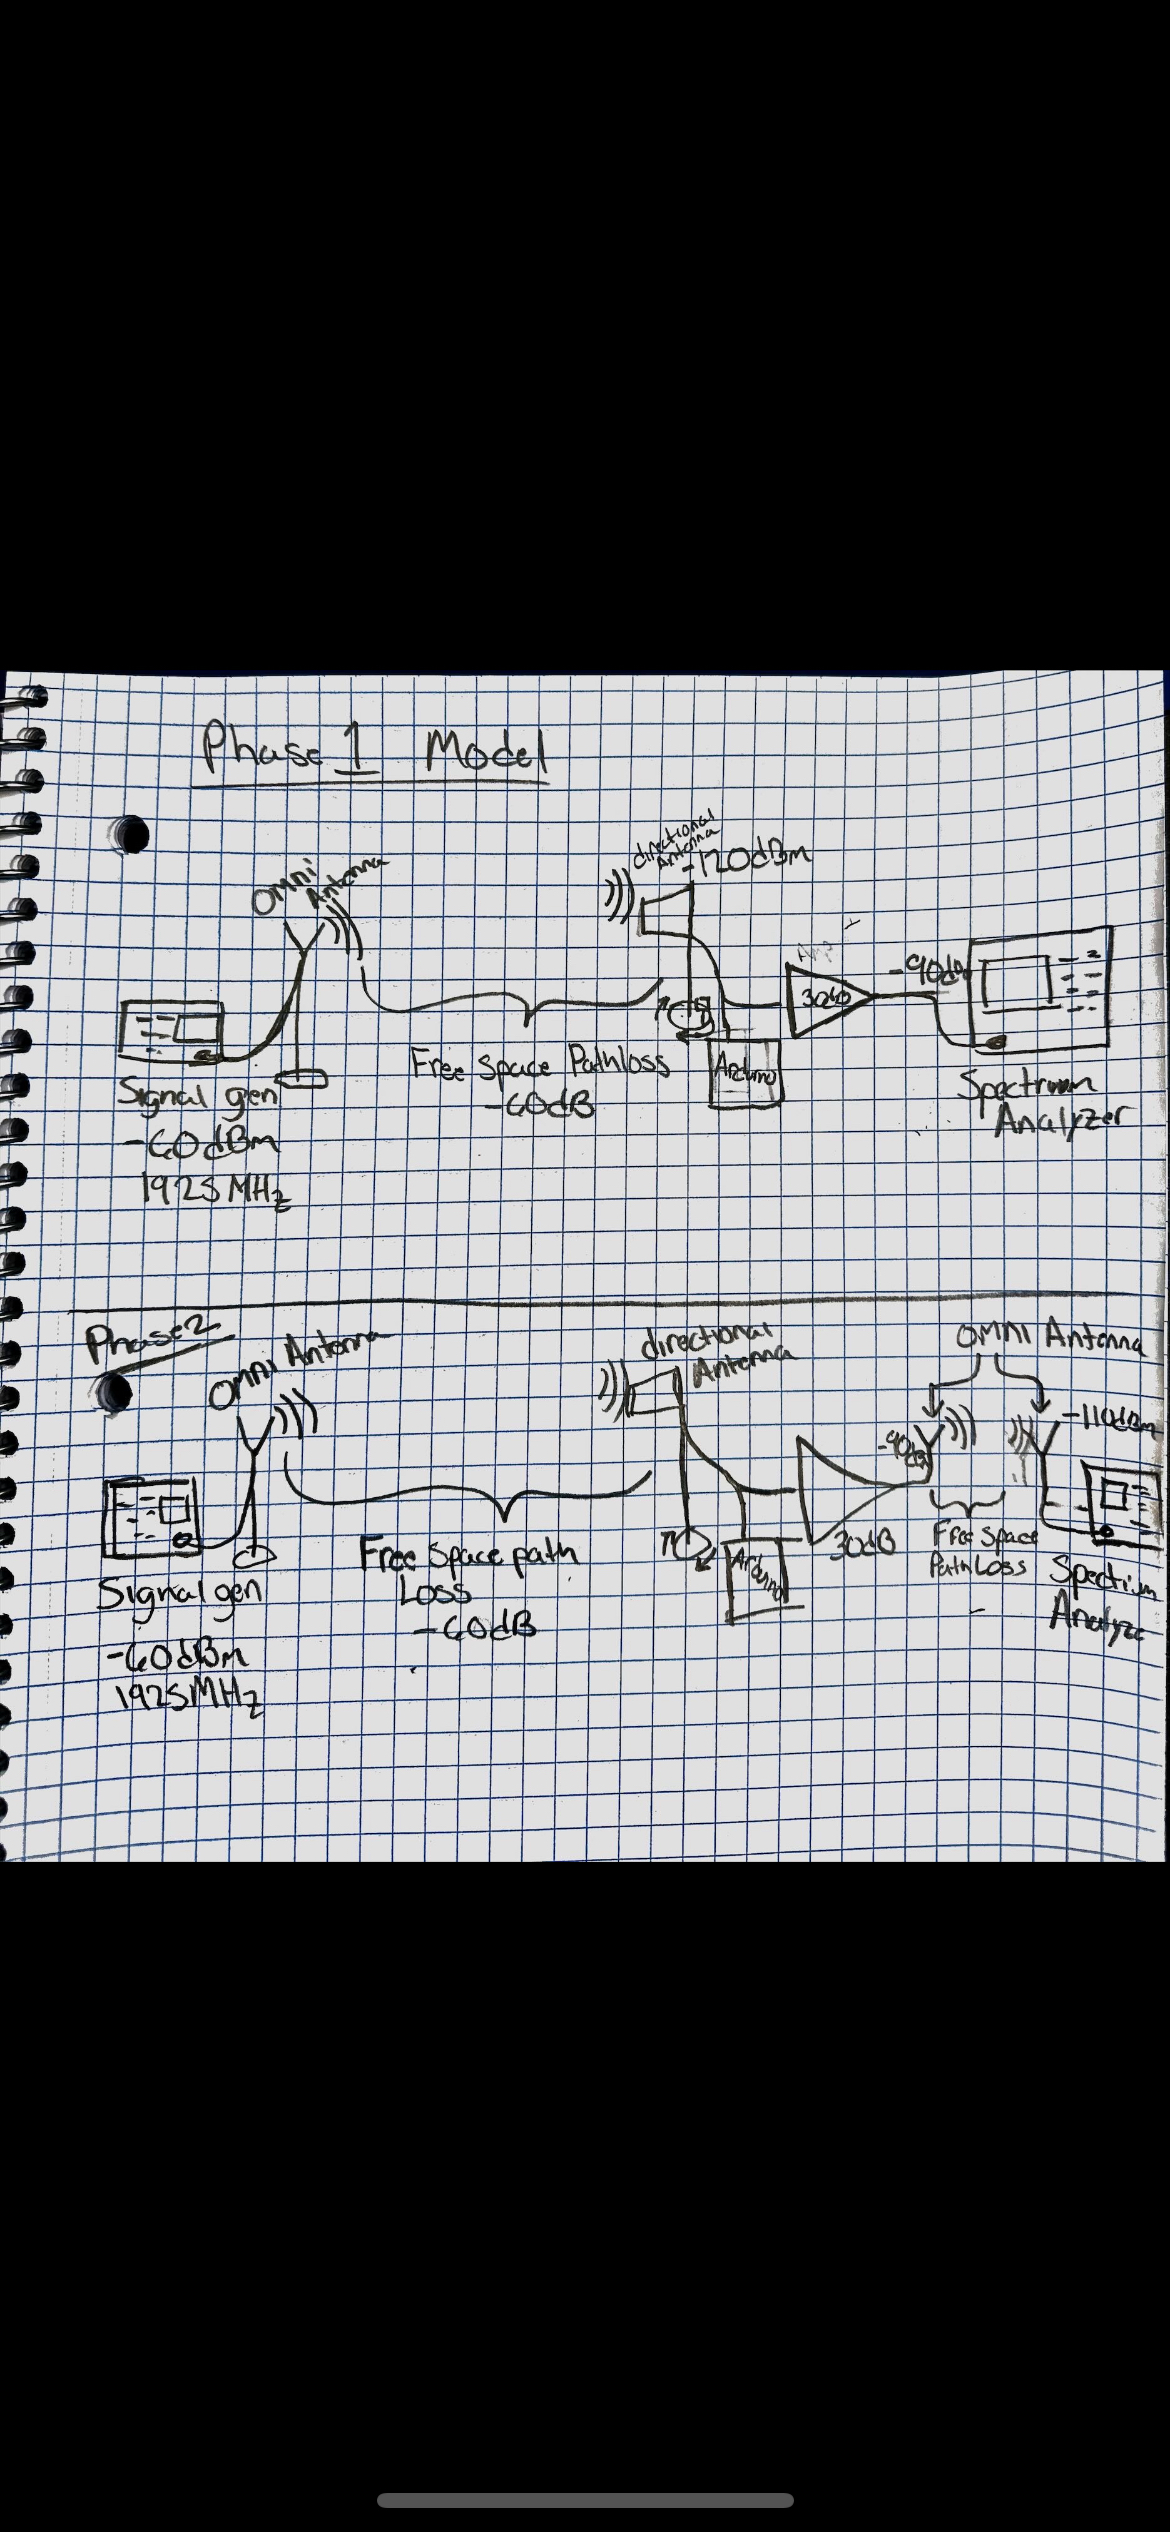 Phase 1 Model
Omni
Antenna
directional
Antenna
-120dBm
Amp
30db
-90dB
Arduino
Free Space Pathloss
-60dB
Signal gen
-60dBm
1925MHz
Spectrum
Analyzer
Phase2
Omni Antenna
directional
Antenna
OMNI Antenna
-90dB
-110dBm
30dB
Arduino
Free Space path
Loss
-60dB
Free Space
Path Loss
-
Signal gen
-60dBm
1925MHz
Spectrum
Analyze